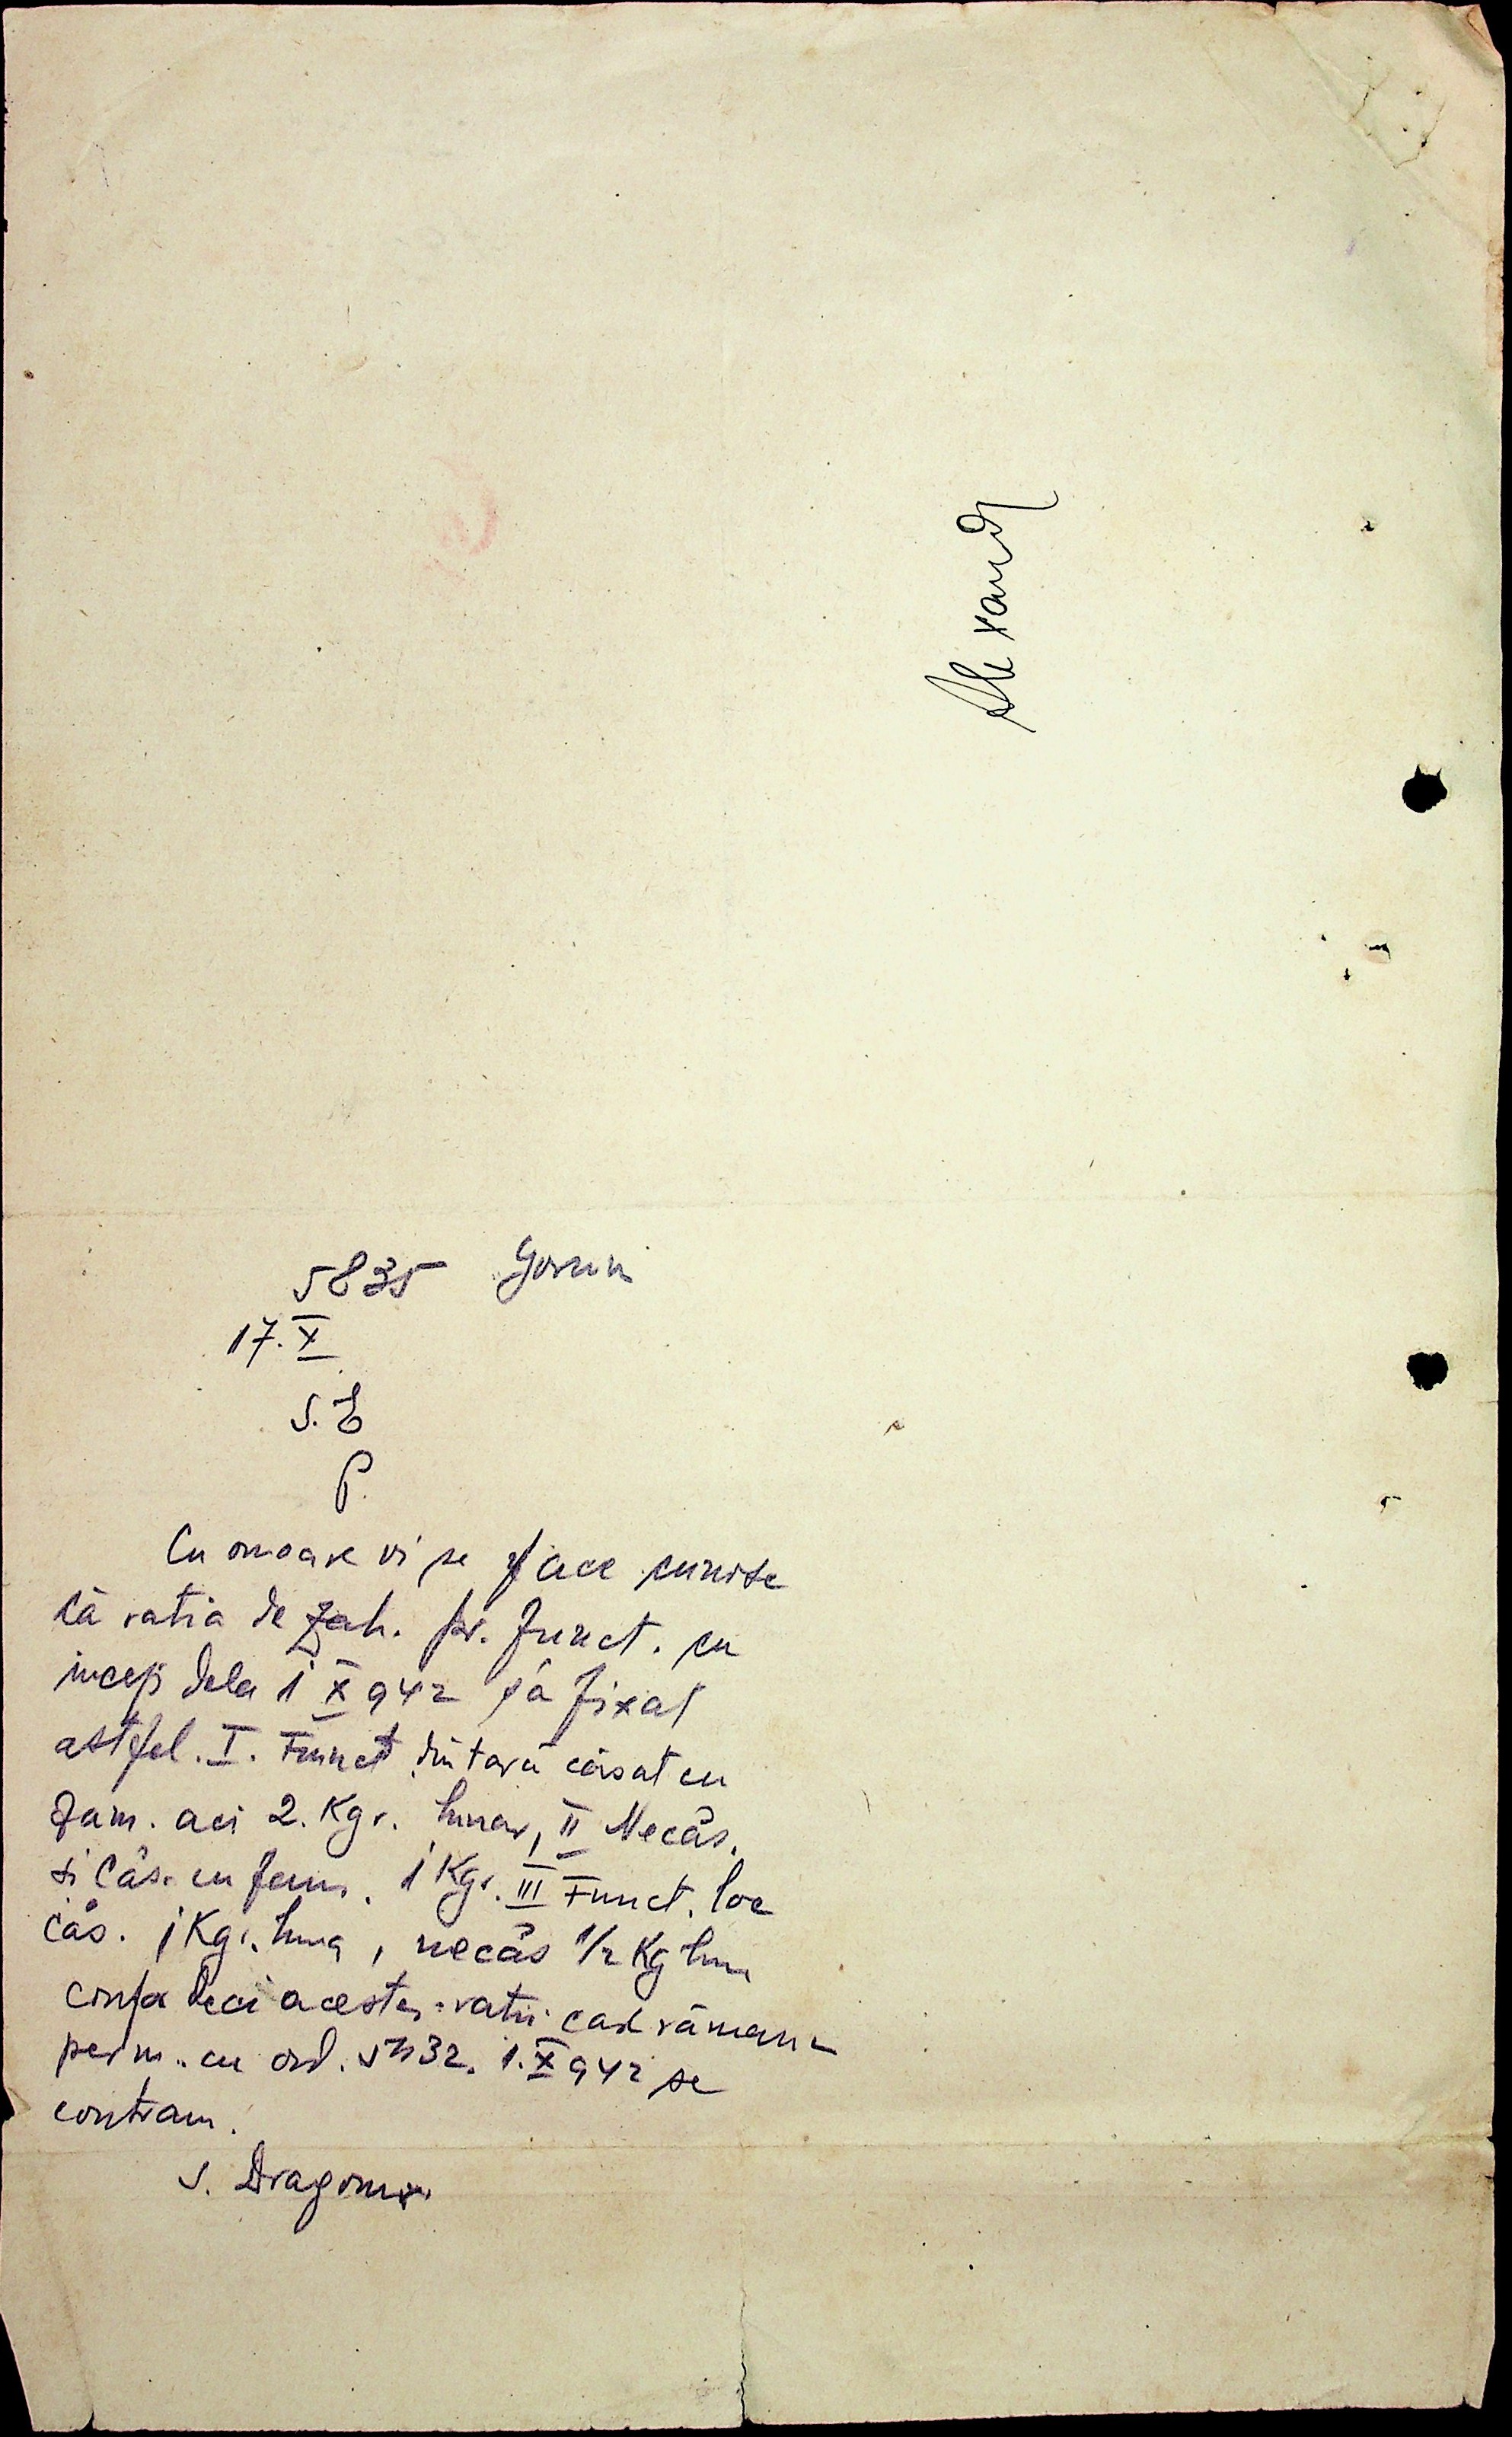 Alexand
5835 Gorun
17.X
S.E
P.
Cu onoare vi se face cunosc
că ratia de zah. pr. funct. cu
incep dela 1 X 942 s'a fixat
astfel. I. Funct din tară căsat cu
fam. aci 2. Kgr. lunar, II Necăs.
si Căs. cu fam. 1 Kgr. III Funct. loc
căs. 1 Kgr. luna, necăs 1/2 Kg lun
deci acestei ratii rămân
perm. cu ord. 1.X 942 se
contram.
S. Dragomir